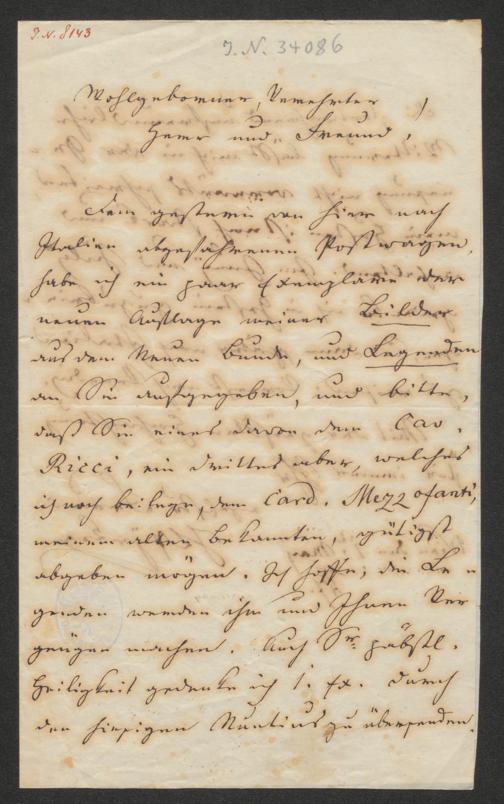 J. N. 8143
J. N. 34086
Wohlgeborner, Verehrter
Herr und Freund!
Dem gestern von hier nach
Italien abgefahrenen Postwagen,
habe ich ein paar Exemplare der
neuen Auflage meiner Bilder
aus dem Neuen Bunde, und Legenden
an Sie aufgegeben, und bitte,
daß Sie eines davon dem Cav.
Ricci, ein drittes aber, welches
ich noch beilege, dem Card. Mezzofanti,
meinem alten Bekannten, gütigst
abgeben mögen. Ich hoffe, die Le-
genden werden ihm und Ihnen Ver
gnügen machen. Auch Sr. päbstl.
Heiligkeit gedenke ich 1. Ex. durch
den hiesigen Nuntius zu übersenden.